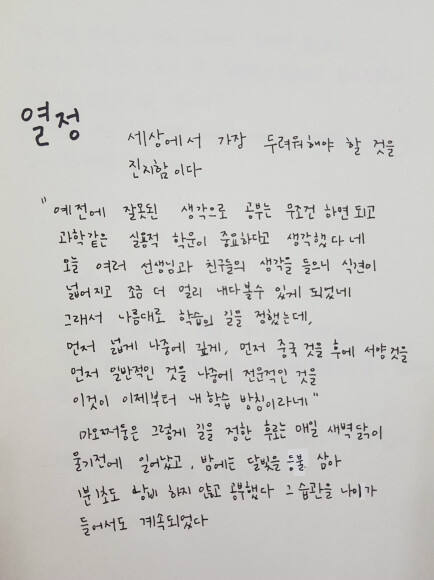 열정
세상에서 가장 두려워해야 할 것을
진지함이다
"예전에 잘못된 생각으로 공부는 무조건 하면 되고
과학같은 실용적 학문이 중요하다고 생각했다네
오늘 여러 선생님과 친구들의 생각을 들으니 식견이
넓어지고 조금 더 멀리 내다볼수 있게 되었네
그래서 나름대로 학습의 길을 정했는데,
먼저 넓게 나중에 깊게, 먼저 중국 것을 후에 서양것을
먼저 일반적인 것을 나중에 전문적인 것을
이것이 이제부터 내 학습 방침이라네"
마오쩌둥은 그렇게 길을 정한 후로는 매일 새벽닭이
울기전에 일어났고, 밤에는 달빛을 등불 삼아
1분1초도 낭비 하지 않고 공부했다 그 습관을 나이가
들어서도 계속되었다